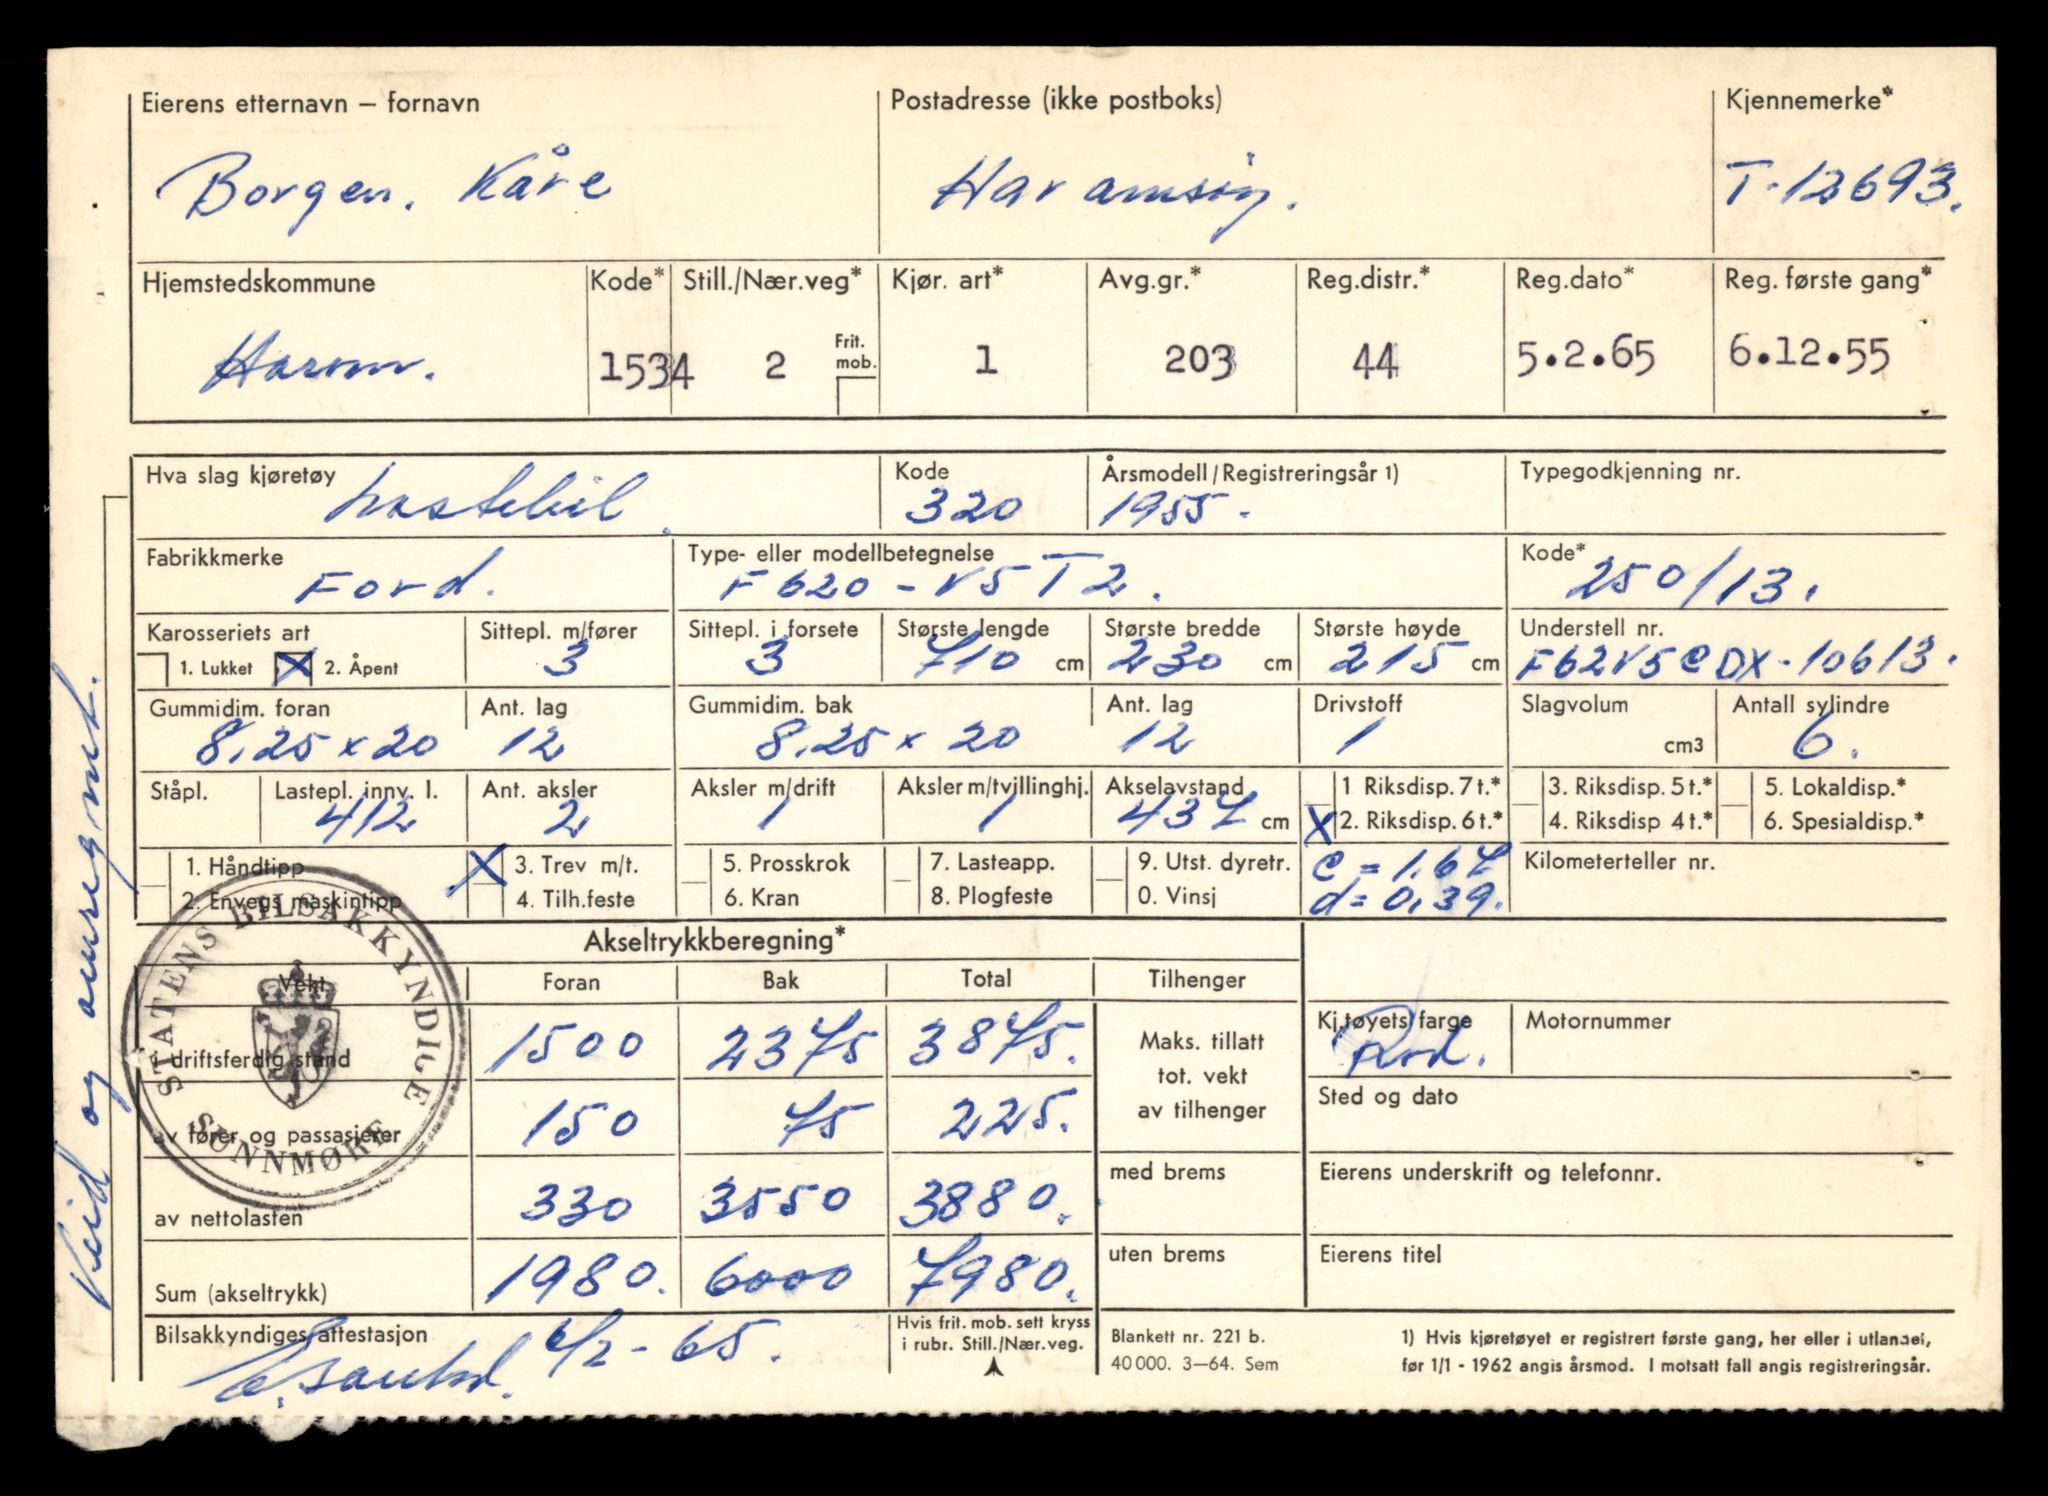 Eierens etternavn – fornavn Postadresse (ikke postboks) Kjennemerke*
Borgen. Kåre Haramsöy. T-12693.
Hjemstedskommune Kode* Still./Nær.veg* Kjør. art* Avg.gr.* Reg.distr.* Reg.dato* Reg. første gang*
Haram. 1534 2 Frit. mob. 1 203 44 5.2.65 6.12.55
Hva slag kjøretøy Kode Årsmodell/Registreringsår 1) Typegodkjenning nr.
Lastebil. 320 1955.
Fabrikkmerke Type- eller modellbetegnelse Kode*
Ford. F620-V5T2. 250/13.
Karosseriets art Sittepl. m/fører Sittepl. i forsete Største lengde Største bredde Største høyde Understell nr.
1. Lukket X 2. Åpent 3 3 710 cm 230 cm 215 cm F62V5CDX-10613.
Gummidim. foran Ant. lag Gummidim. bak Ant. lag Drivstoff Slagvolum Antall sylindre
8.25 x 20 12 8.25 x 20 12 1 cm3 6.
Ståpl. Lastepl. innv. l. Ant. aksler Aksler m/drift Aksler m/tvillinghj. Akselavstand 1 Riksdisp. 7 t.* 3. Riksdisp. 5 t.* 5. Lokaldisp.*
412 2 1 1 437 cm X 2. Riksdisp. 6 t.* 4. Riksdisp 4 t.* 6. Spesialdisp.*
1. Håndtipp X 3. Trev m/t. 5. Prosskrok 7. Lasteapp. 9. Utst. dyretr. c = 1.67 Kilometerteller nr.
2. Envegs maskintipp 4. Tilh.feste 6. Kran 8. Plogfeste 0. Vinsj d = 0,39.
STATENS BILSAKKYNDIGE
SUNNMØRE
Akseltrykkberegning*
Vekt Foran Bak Total Tilhenger
i driftsferdig stand 1500 2375 3875. Maks. tillatt tot. vekt av tilhenger Kj.tøyets farge Rød. Motornummer
av fører og passasjerer 150 75 225. Sted og dato
av nettolasten 330 3550 3880. med brems Eierens underskrift og telefonnr.
Sum (akseltrykk) 1980. 6000 7980. uten brems Eierens titel
Bilsakkyndiges attestasjon 6/2-65. Hvis frit. mob. sett kryss i rubr. Still./Nær.veg.
Blankett nr. 221 b.
40 000. 3–64. Sem
1) Hvis kjøretøyet er registrert første gang, her eller i utlandet,
før 1/1 - 1962 angis årsmod. I motsatt fall angis registreringsår.
Veid og omregnet.